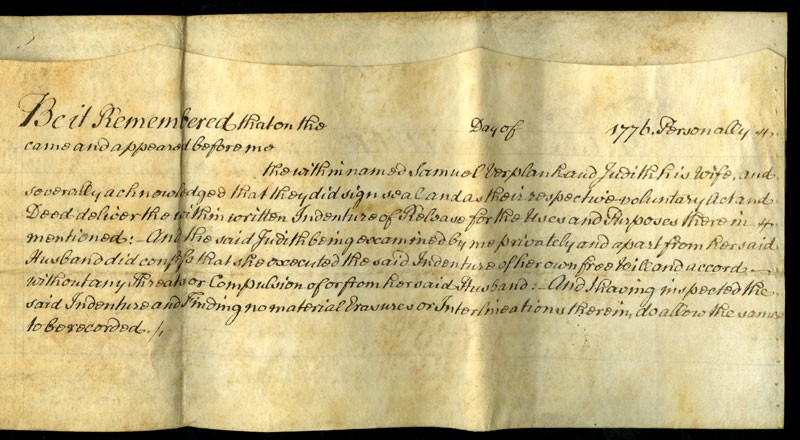 Be it Remembered that on the Day of 1776. Personally
came and appeared before me
the within named Samuel Verplank and Judith his Wife, and
severally acknowledged that they did sign seal and as their respective voluntary Act and
Deed deliver the within written Indenture of Release for the Uses and Purposes therein
mentioned:– And the said Judith being examined by me privately and apart from her said
Husband did confess that she executed the said Indenture of her own free Will and accord
without any Threats or Compulsion of or from her said Husband:– And I having inspected the
said Indenture and Finding no material Erasures or Interlineations therein, do allow the same
to be recorded./.